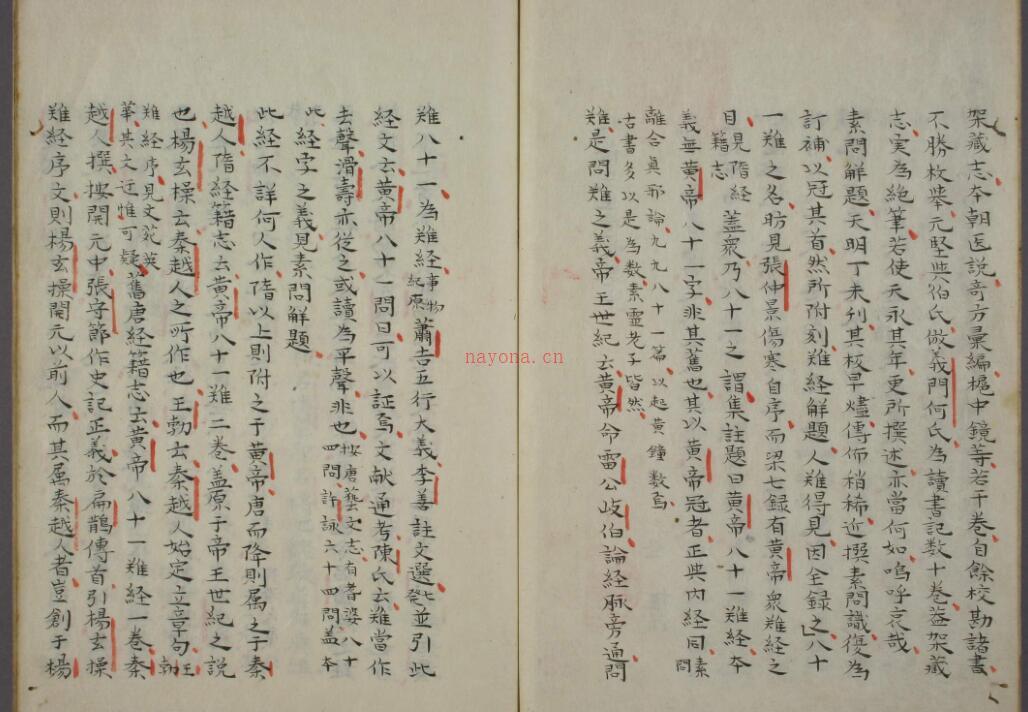 架藏志本朝医説奇方彙編㮰中鏡等若干卷自餘校勘諸書
不勝枚舉元堅典伯氏倣義門何氏為讀書記数十卷盖架藏
志実為絶筆若使天永其年更所撰述亦當何如嗚呼哀哉
素問解題天明丁未刋其板早燼傳佈稍稀近撰素問識復為
訂補以冠其首然所附刻難経解題人難得見因全録之八十
一難之名昉見張仲景傷寒自序而梁七録有黄帝衆難経之
目見隋経籍志盖衆乃八十一之謂集註題曰黄帝八十一難経本
義無黄帝八十一字非其舊也其以黄帝冠者正典内経同素問
離合真邪論九九八十一篇以起黄鐘数焉
古書多以是為数素霊老子皆然
難是問難之義帝王世紀云黄帝命雷公歧伯論経脉旁通問
難八十一為難経事物紀原蕭吉五行大義李善註文選並引此
経文云黄帝八十一問曰可以証焉文献通考陳氏云難當作
去聲滑壽亦從之或讀為平聲非也按唐藝文志有耆婆八十四問許詠六十四問盖本
此経字之義見素問解題
此経不詳何人作隋以上則附之于黄帝唐而降則属之于秦
越人隋経籍志云黄帝八十一難二卷盖原于帝王世紀之説
也楊玄操云秦越人之所作也王勃云秦越人始定立章句王勃
難経序見文苑英
華其文迂惟可疑舊唐経籍志云黄帝八十一難経一卷秦
越人撰按開元中張守節作史記正義於扁鵲傳首引楊玄操
難経序文則楊玄操開元以前人而其属秦越人者豈創于楊
nayona.cn